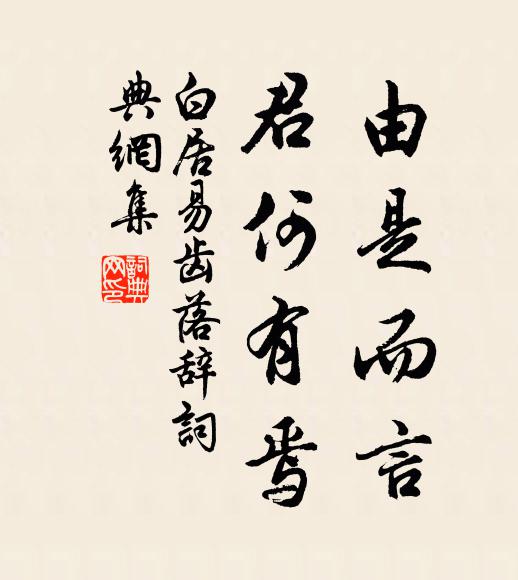 由是而言
君何有焉
白居易齿落辞詞
典網集
詞典网印